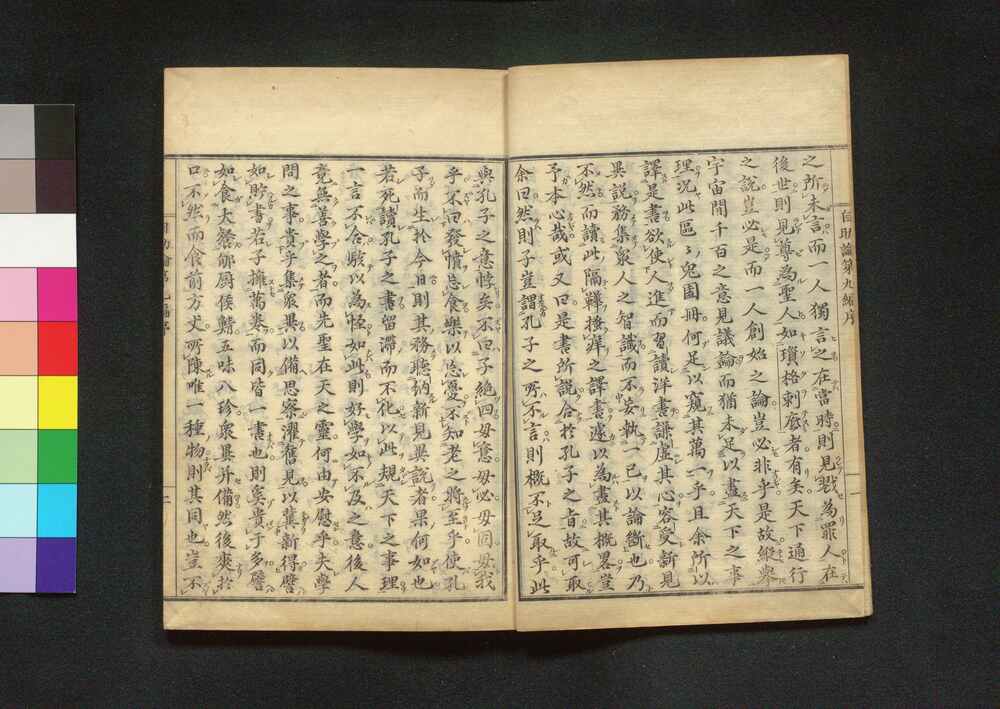 自助論第九編序
之所未言而一人獨言之在當時則見戮為罪人在
後世則見尊為聖人如瑣格剌底者有矣天下通行
之説豈必是而一人創始之論豈必非乎是故縱舉
宇宙間千百之意見議論而猶未足以盡天下之事
理况此區〻兔園冊何足以窺其萬一乎且余所以
譯是書欲使人進而習讀洋書謙虛其心容受新見
異説務集衆人之智識而不妄執一己以論斷也乃
不然而讀此隔鞾搔痒之譯書遽以為盡其概畧豈
予本心哉或又曰是書所説合於孔子之旨故可取
余曰然則子豈謂孔子之所不言則概不足取乎此
與孔子之意悖矣不曰子絶四毋意毋必毋固毋我
乎不曰發憤忘食樂以忘憂不知老之將至乎使孔
子而生於今日則其務聴納新見異説者果何如也
若死讀孔子之書留滯而不化以此規天下之事理
一言不合駭以為怪如此則好學如不及之意後人
竟無善學之者而先聖在天之靈何由安慰乎夫學
問之事貴乎集衆異以備思察濯舊見以冀新得譬
如貯書若子擁萬巻而同皆一書也則奚貴于多譬
如食大餐郇厨侯鯖五味八珍衆異并備然後爽於
口不然而食前方丈所陳唯一種物則其同也豈不